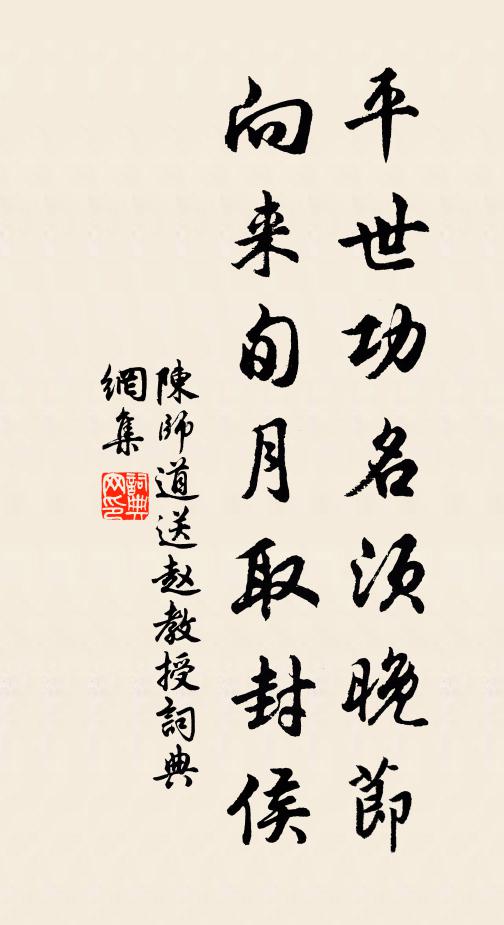 平世功名须晚節
向来旬月取封侯
陳師道送赵教授詞典
網集
詞典
网印